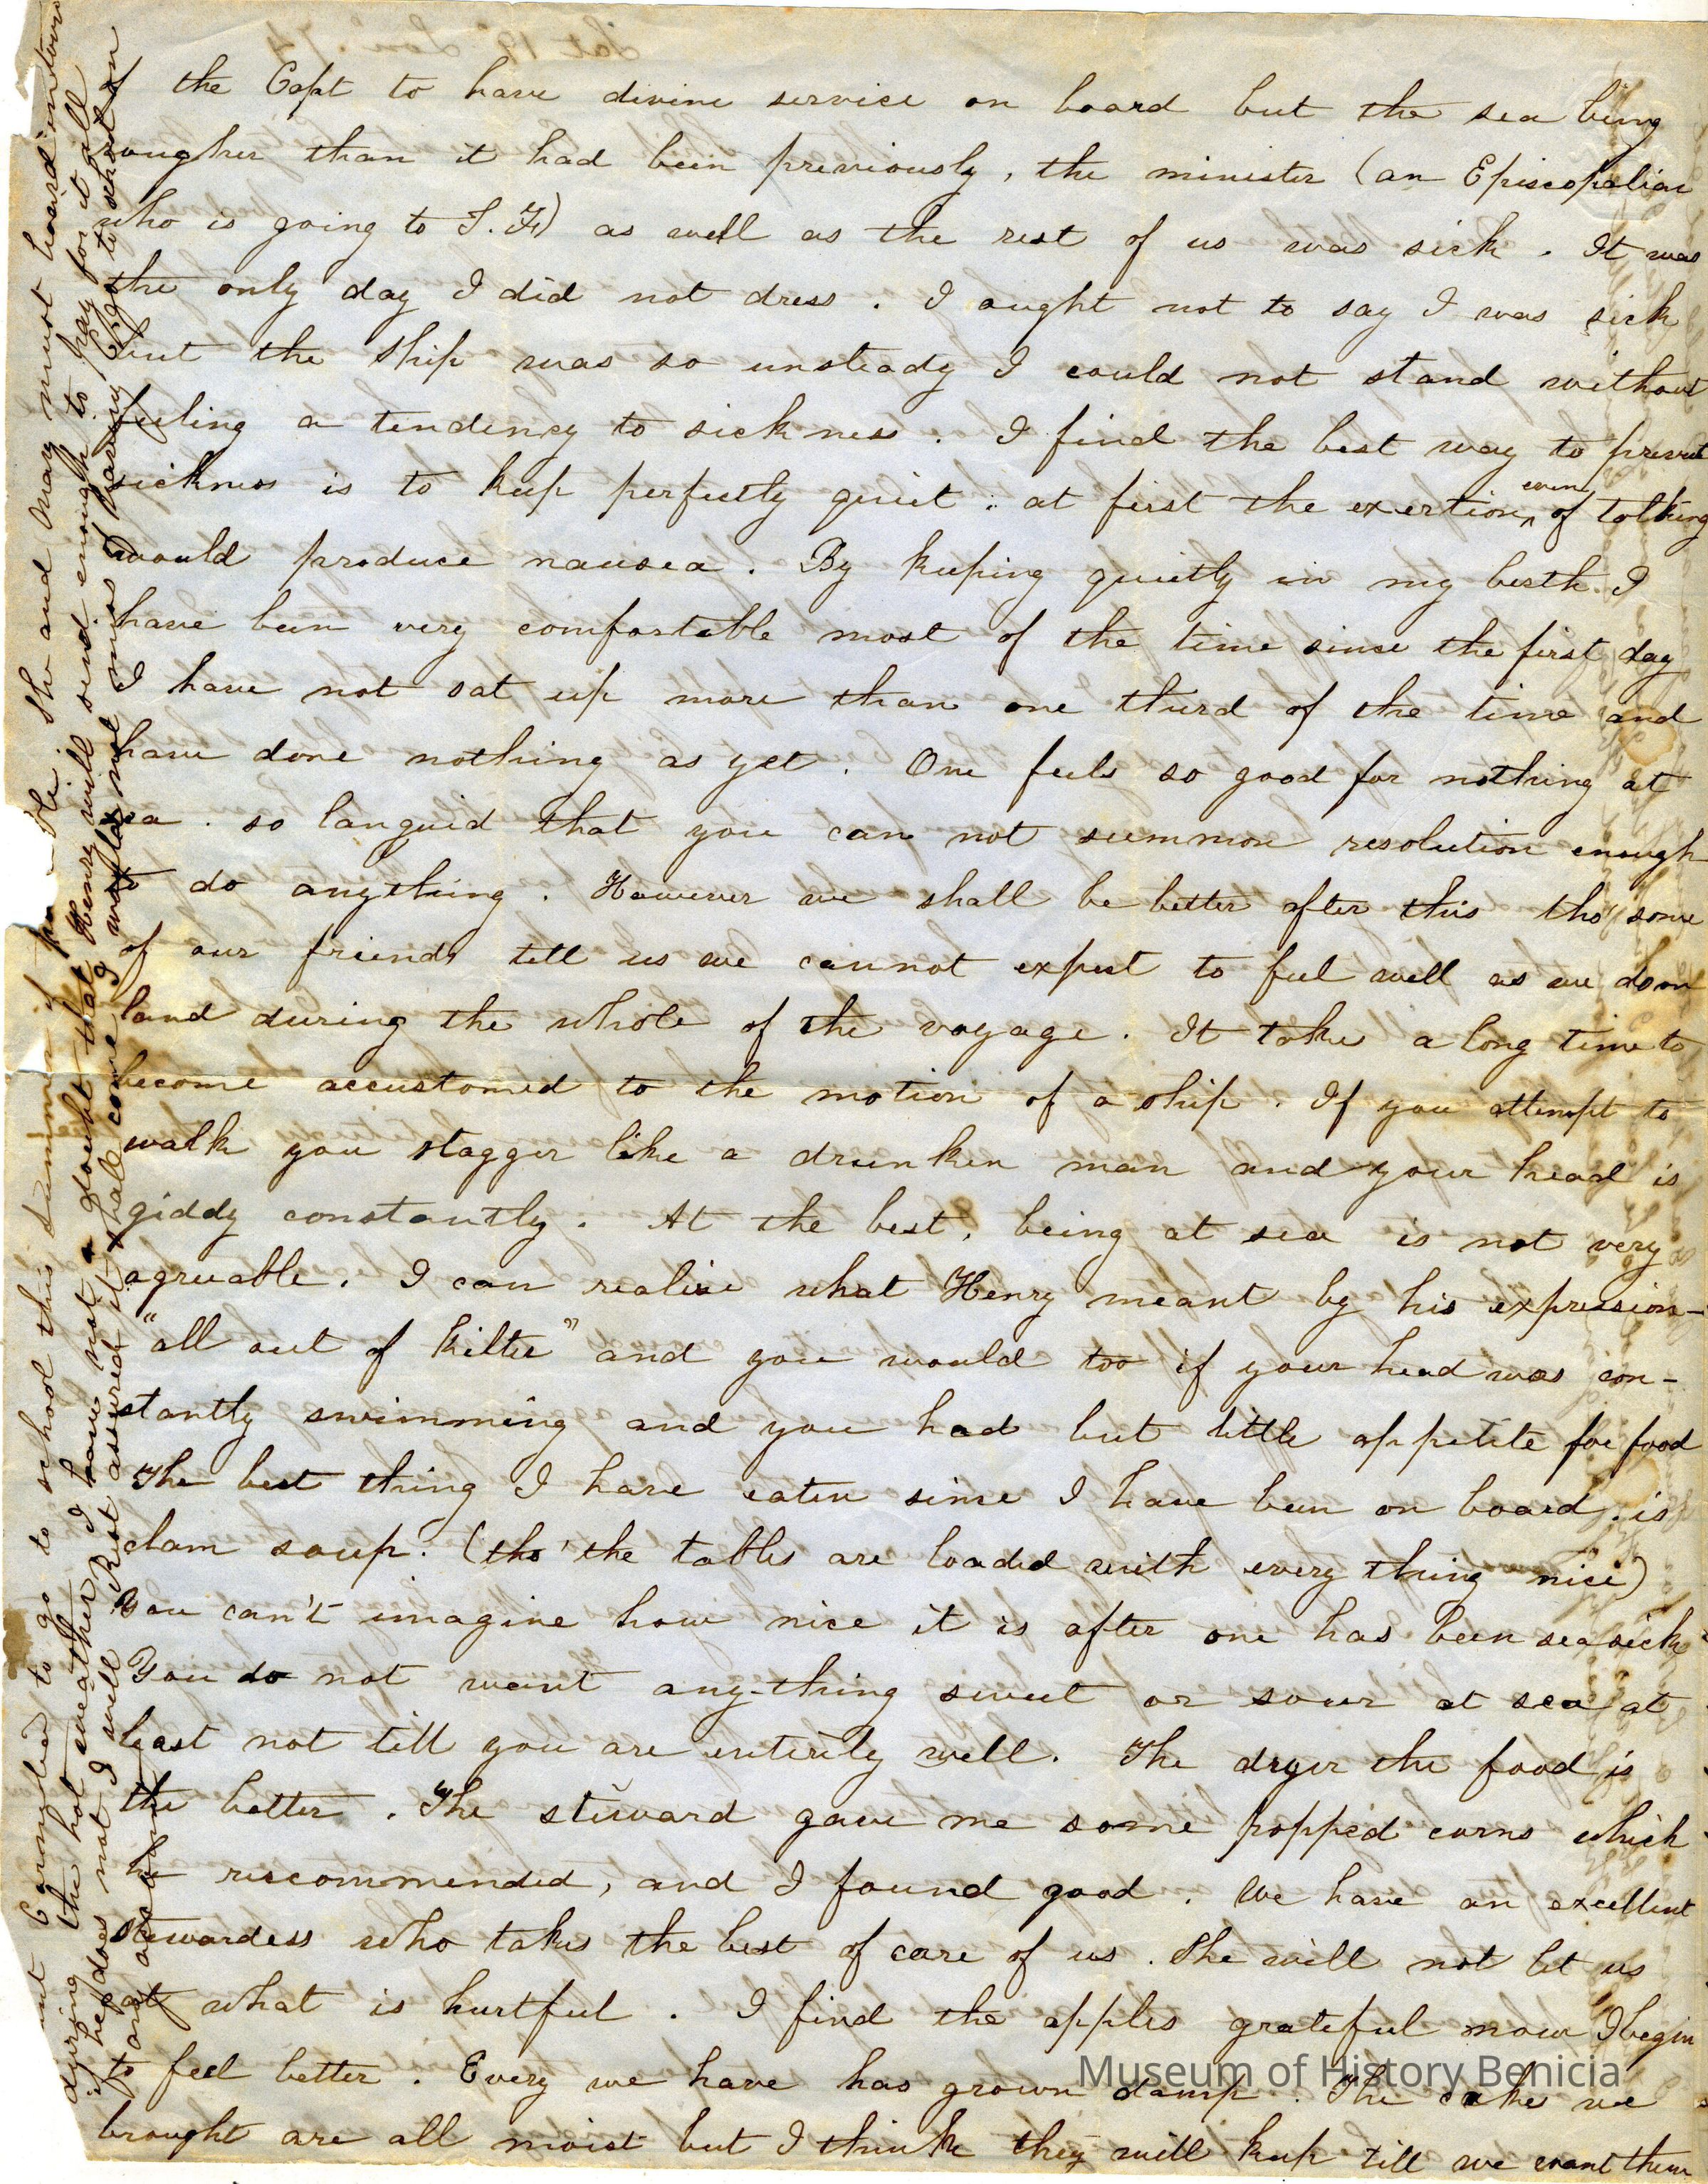 of the Capt to have divine service on board but the sea being
rougher than it had been previously, the minister (an Episcopalian
who is going to S.F.) as well as the rest of us was sick. It was
the only day I did not dress. I ought not to say I was sick
but the ship was so unsteady I could not stand without
feeling a tendency to sickness. I find the best way to prevent
sickness is to keep perfectly quiet: at first the exertion even of talking
would produce nausea. By keeping quietly in my berth I
have been very comfortable most of the time since the first day
I have not sat up more than one third of the time and
have done nothing as yet. One feels so good for nothing at
sea. so languid that you can not summon resolution enough
to do anything. However we shall be better after this tho' some
of our friends tell us we cannot expect to feel well as we do on
land during the whole of the voyage. It takes a long time to
become accustomed to the motion of a ship. If you attempt to
walk you stagger like a drunken man and your head is
giddy constantly. At the best, being at sea is not very
agreeable. I can realise what Henry meant by his expression-
"all out of kilter" and you would too if your head was con-
stantly swimming and you had but little appetite for food
The best thing I have eaten since I have been on board is
clam soup. (tho' the tables are loaded with every thing nice)
You can't imagine how nice it is after one has been seasick
You do not want any-thing sweet or sour at sea at
least not till you are entirely well. The dryer the food is
the better. The steward gave me some popped corns which
he reccommended, and I found good. We have an excellent
stewardess who takes the best of care of us. She will not let us
eat what is hurtful. I find the apples grateful now I begin
to feel better. Every we have has grown damp. The cakes we
brought are all moist but I think they will keep till we want them
to go to school this summer if She and Mary must board in town
during the hot weather I have not a doubt that Henry will send enough to pay for it all
if he does not I will Rest assured it shall come I would not miss having to school on
any account
Sat 19
Museum of History Benicia